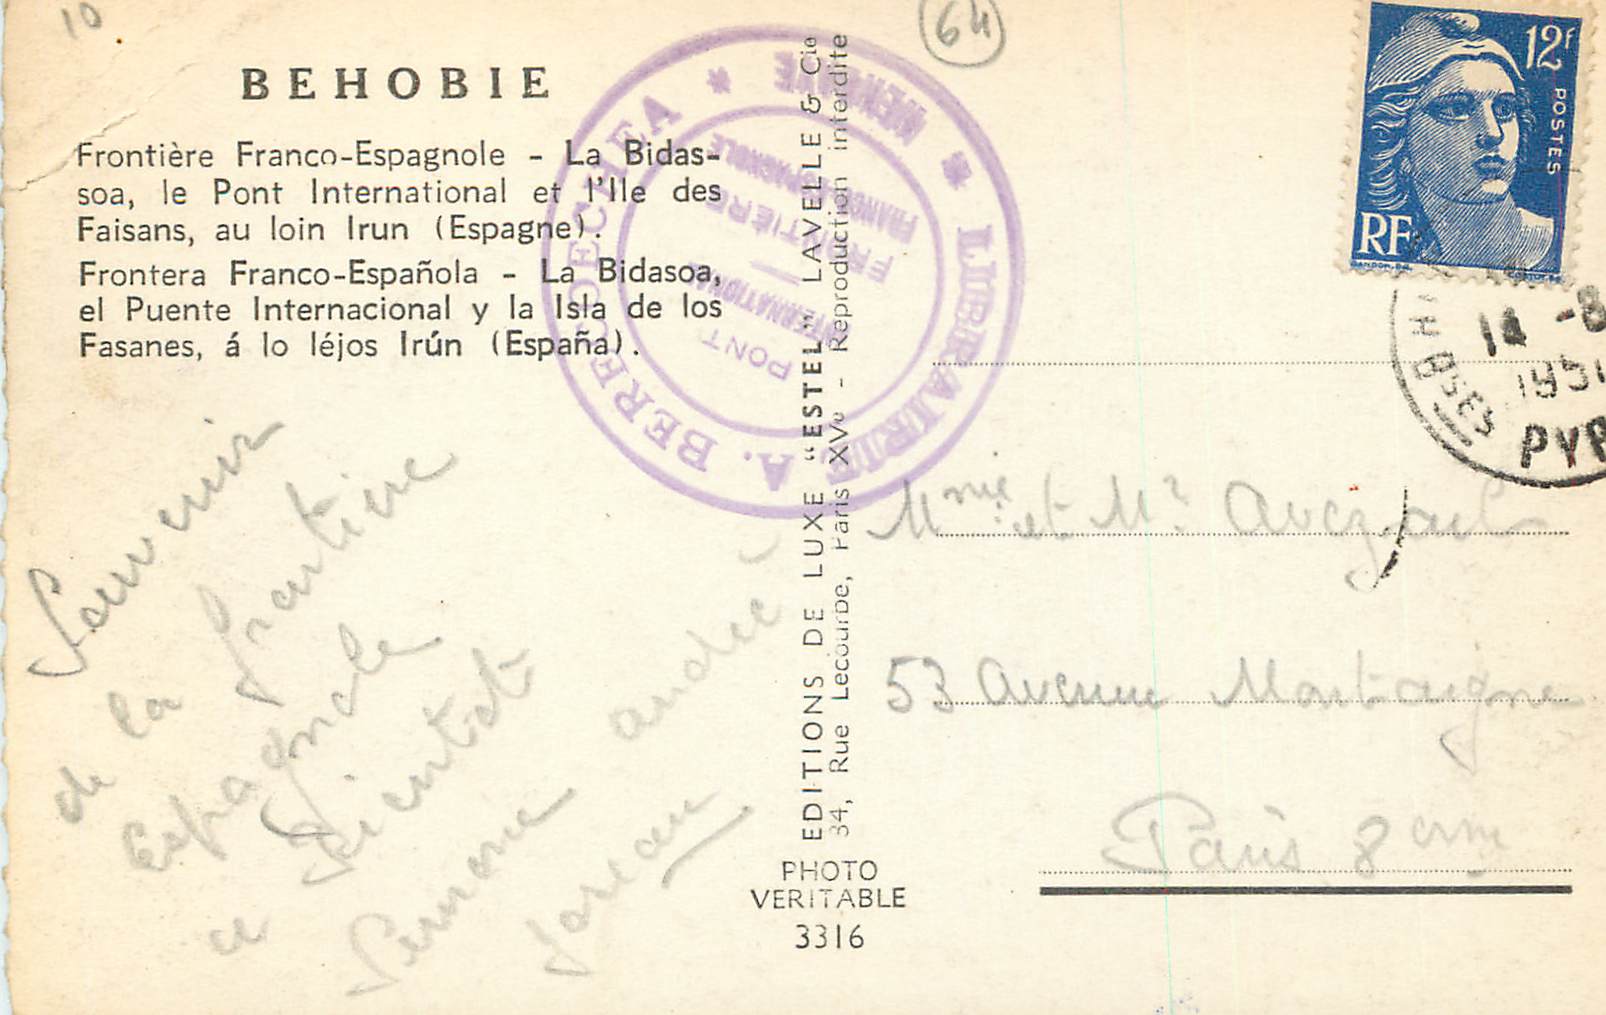 10
64
BEHOBIE
Frontière Franco-Espagnole - La Bidas-
soa, le Pont International et l'Ile des
Faisans, au loin Irun (Espagne).
Frontera Franco-Española - La Bidasoa,
el Puente Internacional y la Isla de los
Fasanes, á lo léjos Irún (España).
LIBRAIRIE A. BERECOECHEA
PONT
INTERNATIONAL
FRONTIÈRE
FRANCO-ESPAGNOLE
BEHOBIE
EDITIONS DE LUXE "ESTEL" LAVELLE & Cie
34, Rue Lecourbe, Paris XVe - Reproduction interdite
PHOTO
VERITABLE
3316
12f
POSTES
RF
GANDON
14 -8
1951
PYR
Souvenir
de la frontière
Espagnole
a Bientot
Simone andré
Mme et Mr
53 Avenue Montaigne
Paris 8eme